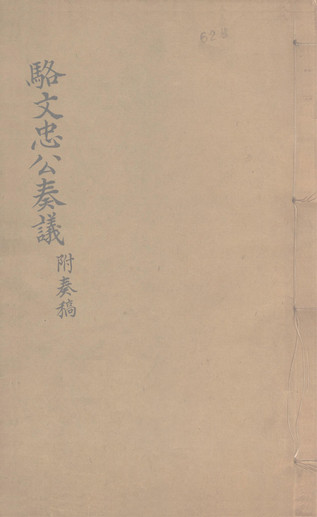 駱文忠公奏議
附奏稿